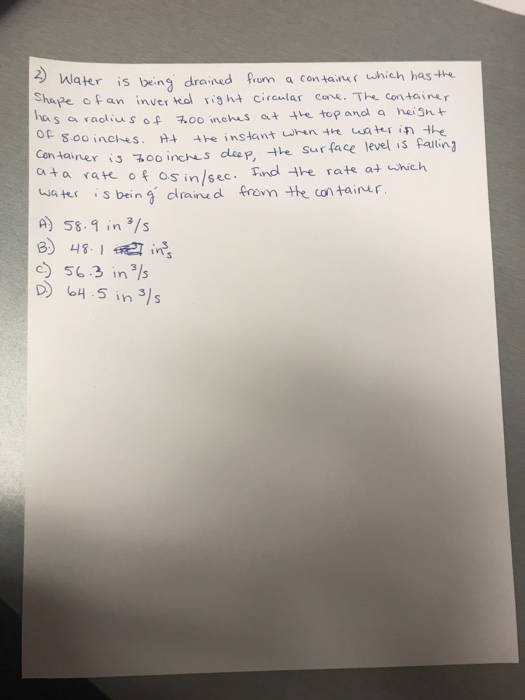 2) Water is being drained from a container which has the
shape of an inverted right circular cone. The container
has a radius of 7.00 inches at the top and a height
of 8.00 inches. At the instant when the water in the
container is 7.00 inches deep, the surface level is falling
at a rate of 0.5 in/sec. Find the rate at which
water is being drained from the container.
A) 58.9 in³/s
B.) 48.1 in³s
C) 56.3 in³/s
D.) 64.5 in³/s